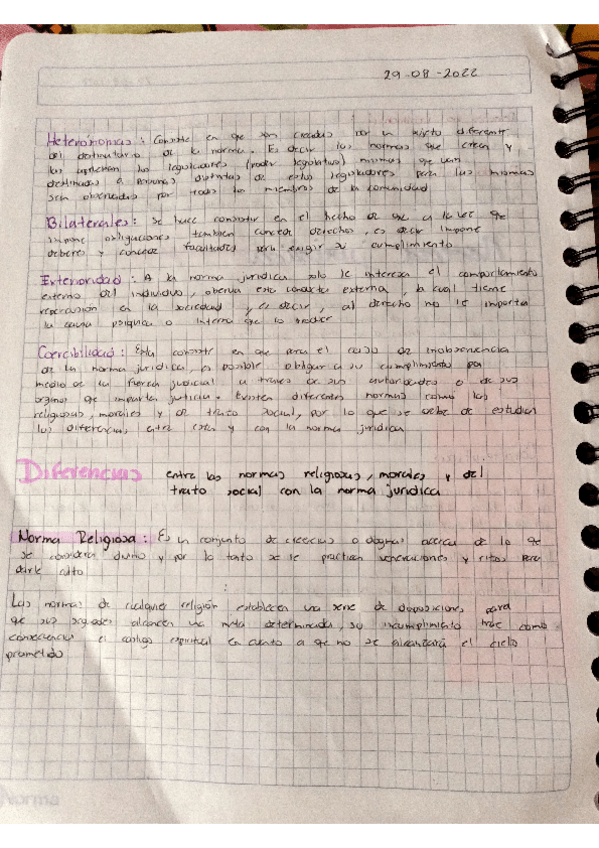 29-08-2022
Heterónomas: Consiste en que son creadas por un sujeto diferente
del destinatario de la norma. Es decir las normas que crean y
las aprueban los legisladores (poder legislativo) mismos que van
destinadas a personas distintas de estos legisladores pero las mismas
sean observadas por todos los miembros de la comunidad
Bilaterales: Se hace consistir en el hecho de que a la vez que
impone obligaciones tambien conceder derechos, es decir impone
deberes y conceder facultades para exigir su cumplimiento
Exterioridad: A la norma juridica solo le interesa el comportamiento
externo del individuo, observa esta conducta externa, la kual tiene
repercusión en la sociedad y es decir, al derecho no le importa
la causa psiquica o interna que lo produce
Coercibilidad: Esta consiste en que para el caso de inobservancia
de la norma juridica, es posible obligar a su cumplimiento por
medio de la fuerza judicial a traves de sus autoridades o de sus
organos que imparten justicia. Existen diferentes normas como las
religiosas, morales y de trato social, por lo que se debe de estudiar
las diferencias entre estas y con la norma juridica
Diferencias entre las normas religiosas, morales y del
trato social con la norma juridica
Norma Religiosa: Es un conjunto de creencias o dogmas acerca de lo que
se considera divino y por lo tanto se le practican veneraciones y ritos para
darle culto
Las normas de cualquier religión establecen una serie de disposiciones para
que sus seguidores alcancen una meta determinada, su incumplimiento trae como
consecuencia el castigo espiritual en cuanto a que no se alcanzará el cielo
prometido
Norma